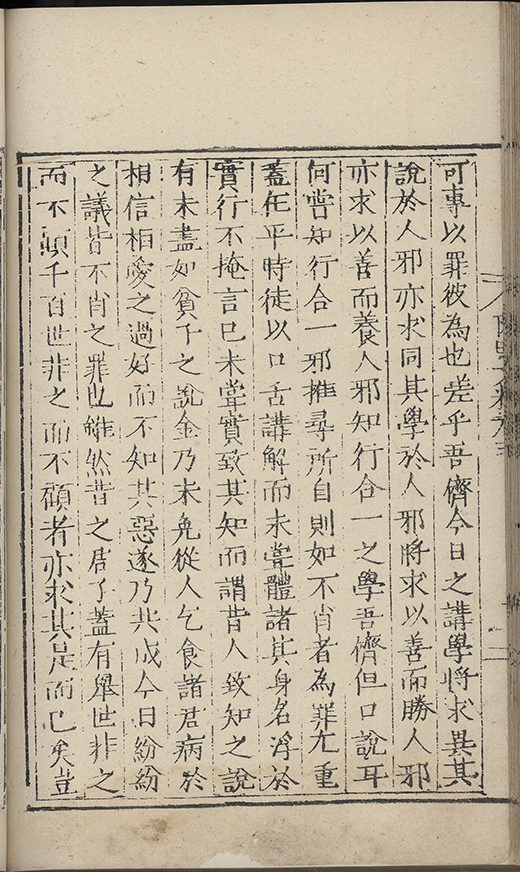 可專以罪彼為也嗟乎吾儕今日之講學將求異其
說於人邪亦求同其學於人邪將求以善而勝人邪
亦求以善而養人邪知行合一之學吾儕但口說耳
何嘗知行合一邪推尋所自則如不肖者為罪尤重
蓋在平時徒以口舌講解而未嘗體諸其身名浮於
實行不掩言已未嘗實致其知而謂昔人致知之說
有未盡如貧子之說金乃未免從人乞食諸君病於
相信相愛之過好而不知其惡遂乃共成今日紛紛
之議皆不肖之罪也雖然昔之君子蓋有舉世非之
而不顧千百世非之而不顧者亦求其是而已矣豈